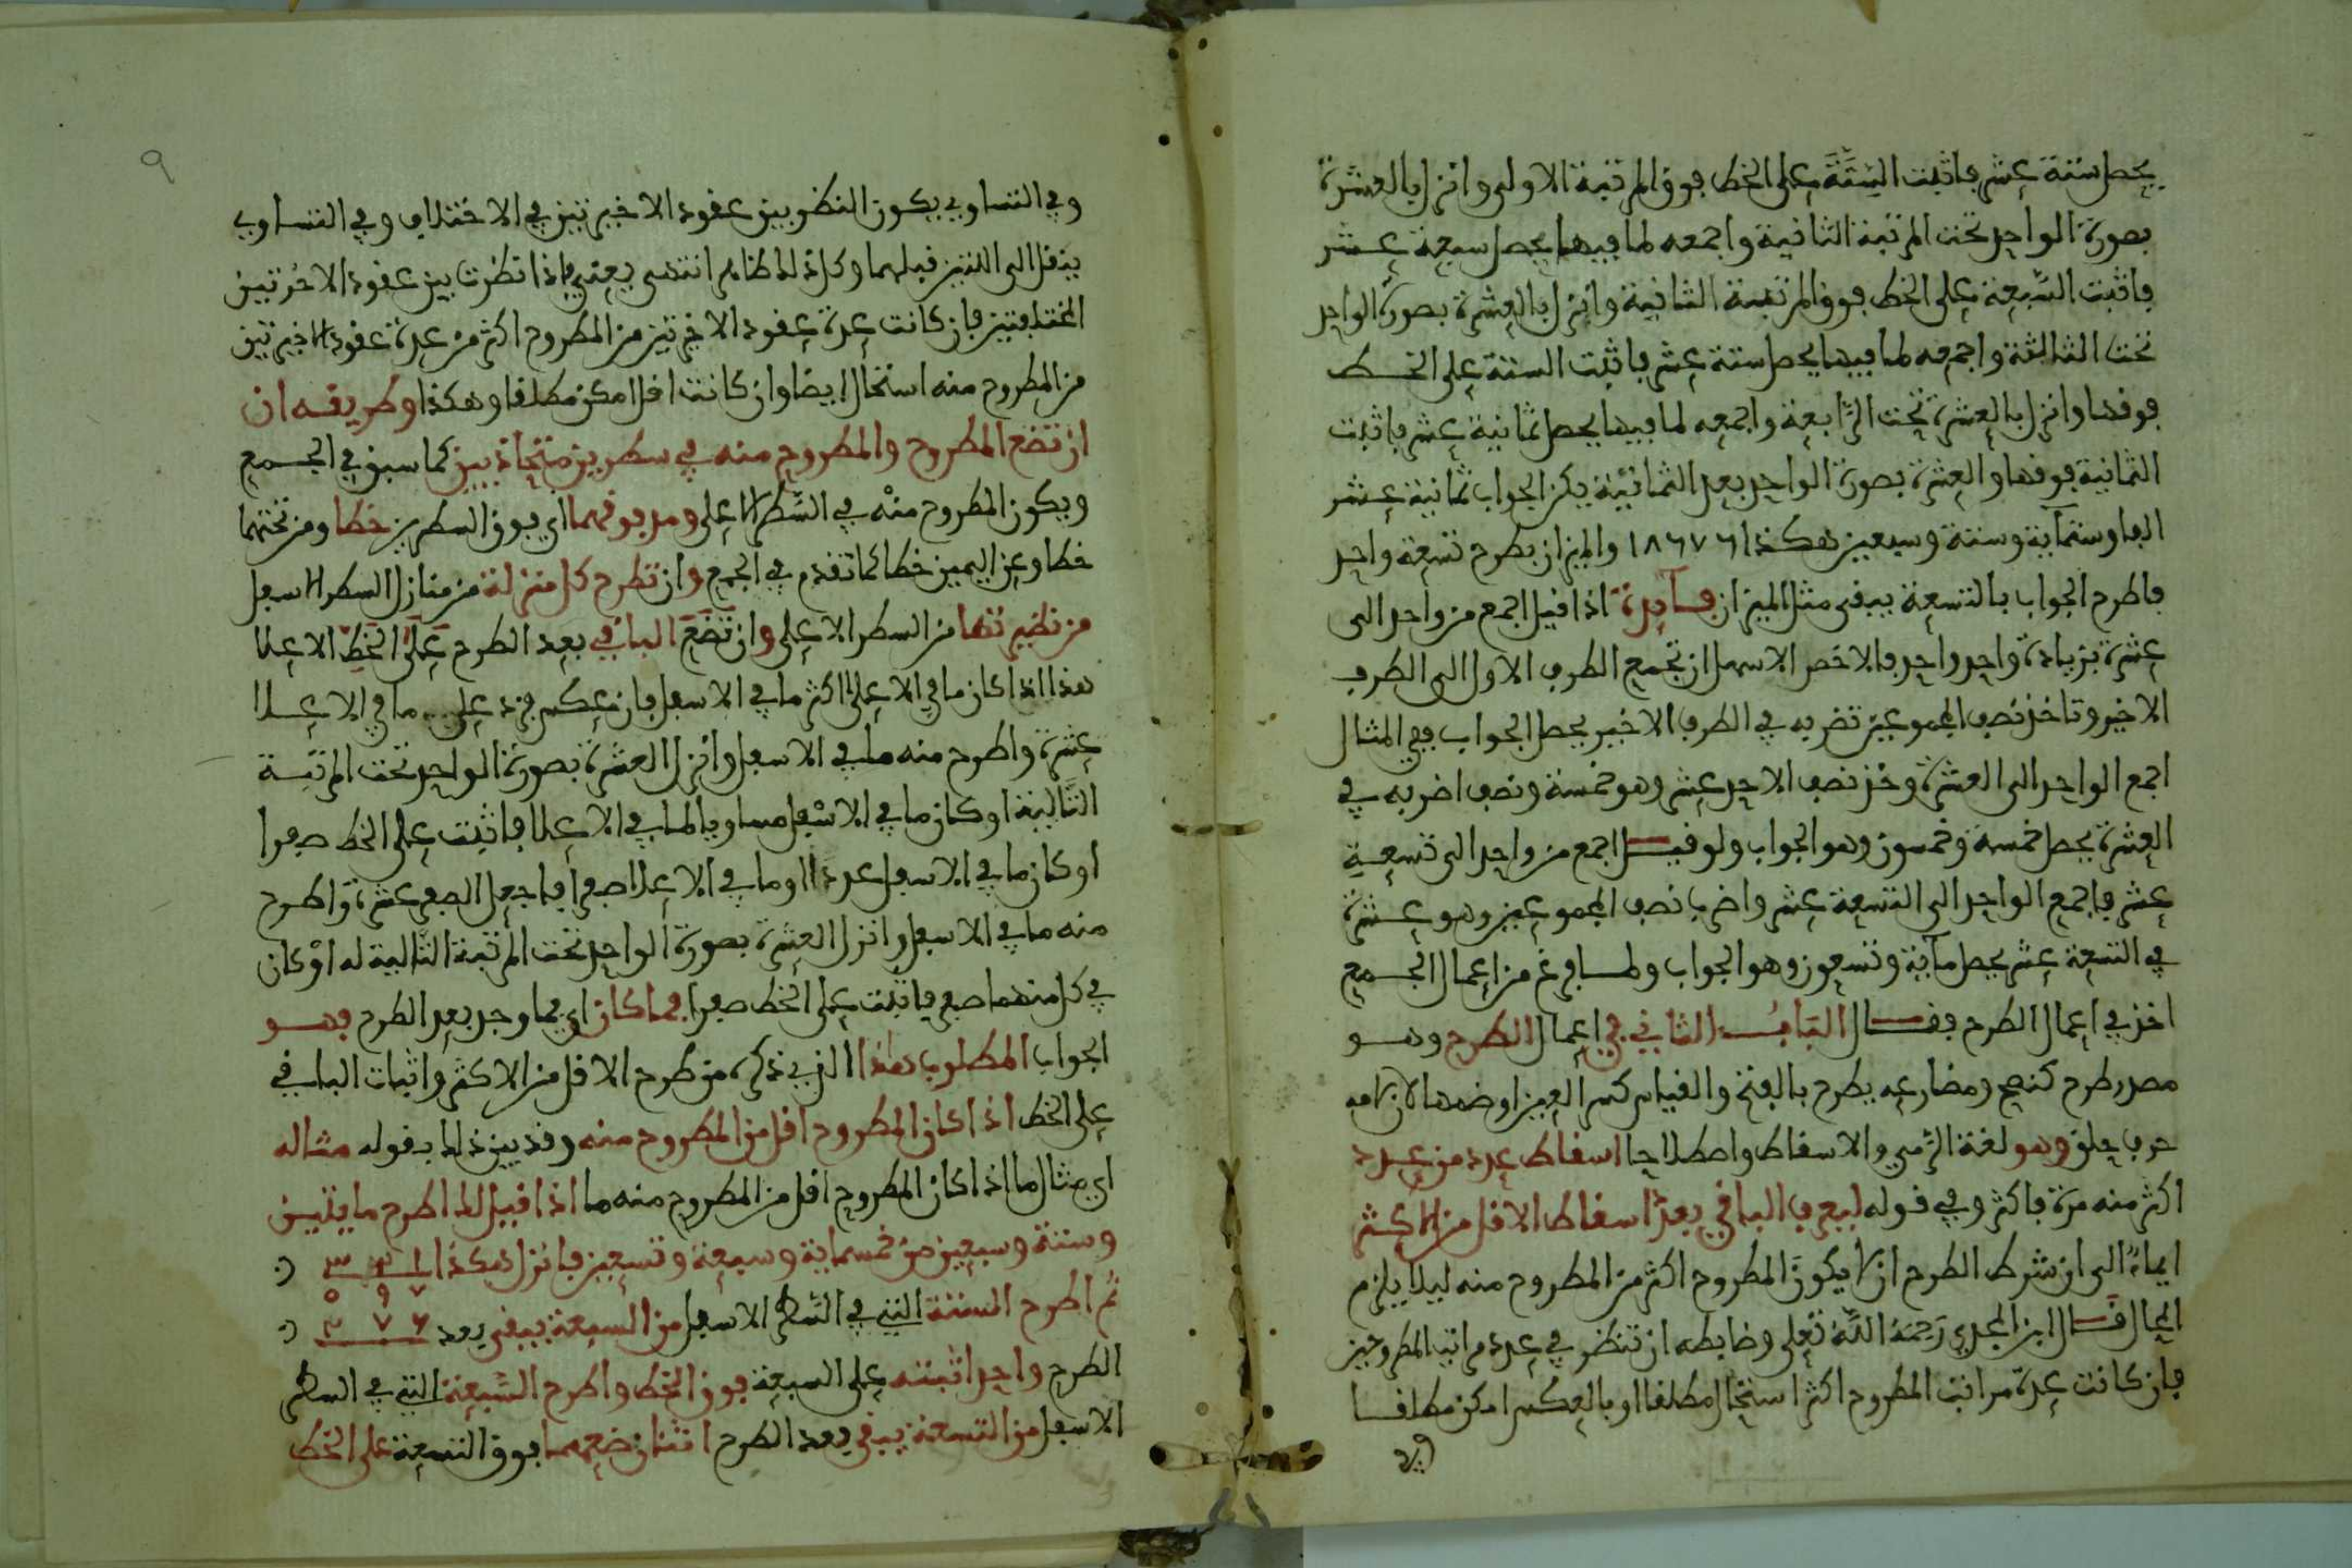 يحصل ستة عشر فاثبت الستة على الخط فوق المرتبة الاولى وانزل بالعشرة
بصورة الواحد تحت المرتبة الثانية واجمعه لما فيها يحصل سبعة عشر
فاثبت السبعة على الخط فوق المرتبة الثانية وانزل بالعشرة بصورة الواحد
تحت الثالثة واجمعه لما فيها يحصل ستة عشر فاثبت الستة على الخط
فوقها وانزل بالعشرة تحت الرابعة واجمعه لما فيها يحصل ثمانية عشر فاثبت
الثمانية فوقها والعشرة بصورة الواحد بعد الثمانية يكن الجواب ثمانية عشر
الفا وستماية وستة وسبعين هكذا ١٨٦٧٦ والميزان بطرح تسعة واحد
فاطرح الجواب بالتسعة يبقى مثل الميزان فايدة اذا قيل اجمع من واحد الى
عشرة بزيادة واحد واحد فالاخصر الاسهل ان تجمع الطرف الاول الى الطرف
الاخير وتاخذ نصف المجموعين تضربه في الطرف الاخير يحصل الجواب ففي المثال
اجمع الواحد الى العشرة وخذ نصف الاحد عشر وهو خمسة ونصف اضربه في
العشرة يحصل خمسة وخمسون وهو الجواب ولو قيل اجمع من واحد الى تسعة
عشر فاجمع الواحد الى التسعة عشر واضرب نصف المجموعين وهو عشرة
في التسعة عشر يحصل ماية وتسعون وهو الجواب ولما فرغ من اعمال الجمع
اخذ في اعمال الطرح فقال الباب الثاني في اعمال الطرح وهو
مصدر طرح كنصح ومضارعه يطرح بالفتح والقياس كسر العين او ضمها لان لامه
حرف حلق وهو لغة الرمي والاسقاط واصطلاحا اسقاط عدد من عدد
اكثر منه مرة فاكثر وفي قوله ليعرف الباقي بعد اسقاط الاقل من الاكثر
ايماء الى ان شرط الطرح ان لا يكون المطروح اكثر من المطروح منه ليلا يلزم
المحال قال ابن المجدي رحمه الله تعلى وضابطه ان تنظر في عدة مراتب المطروحين
فان كانت عدة مراتب المطروح اكثر استحال مطلقا او بالعكس امكن مطلقا
وفي
٩
وفي التساوي يكون النظر بين عقود الاخيرتين في الاختلاف وفي التساوي
ينقل الى اللتين قبلهما وكذلك انتهى يعني فاذا نظرت بين عقود الاخرتين
المختلفتين فان كانت عدة عقود الاخيرتين من المطروح اكثر من عدة عقود الاخيرتين
من المطروح منه استحال ايضا وان كانت اقل امكن مطلقا وهكذا وطريقه ان
ان تضع المطروح والمطروح منه في سطرين متحاذيين كما سبق في الجمع
ويكون المطروح منه في السطر الاعلى ومد فوقهما اي فوق السطرين خطا ومن تحتهما
خطا وعن اليمين خطا كما تقدم في الجمع وان تطرح كل منزلة من منازل السطر الاسفل
من نظيرتها من السطر الاعلى وان تضع الباقي بعد الطرح على الخط الاعلا
هذا اذا كان ما في الاعلى اكثر ما في الاسفل فان عكس فزد على ما في الاعلا
عشرة واطرح منه ما في الاسفل وانزل العشرة بصورة الواحد تحت المرتبة
التالية او كان ما في الاسفل مساويا لما في الاعلا فاثبت على الخط صفرا
او كان ما في الاسفل عددا او ما في الاعلا صفرا فاجعل الصفر عشرة واطرح
منه ما في الاسفل وانزل العشرة بصورة الواحد تحت المرتبة التالية له او كان
في كل منهما صفر فاثبت على الخط صفرا فما كان اي فما وجد بعد الطرح فهو
الجواب المطلوب هذا الذي ذكره من طرح الاقل من الاكثر واثبات الباقي
على الخط اذا كان المطروح اقل من المطروح منه وقد بين ذلك بقوله مثاله
اي مثال ما اذا كان المطروح اقل من المطروح منه ما اذا قيل لك اطرح مايتين
وستة وسبعين من خمسماية وسبعة وتسعين فانزل هكذا ٣ ٢ ١
٥ ٩ ٧
ثم اطرح الستة التي في السطر الاسفل من السبعة يبقى بعد ٢ ٧ ٦
الطرح واحد اثبته على السبعة فوق الخط واطرح السبعة التي في السطر
الاسفل من التسعة يبقى بعد الطرح اثنان ضعهما فوق التسعة على الخط